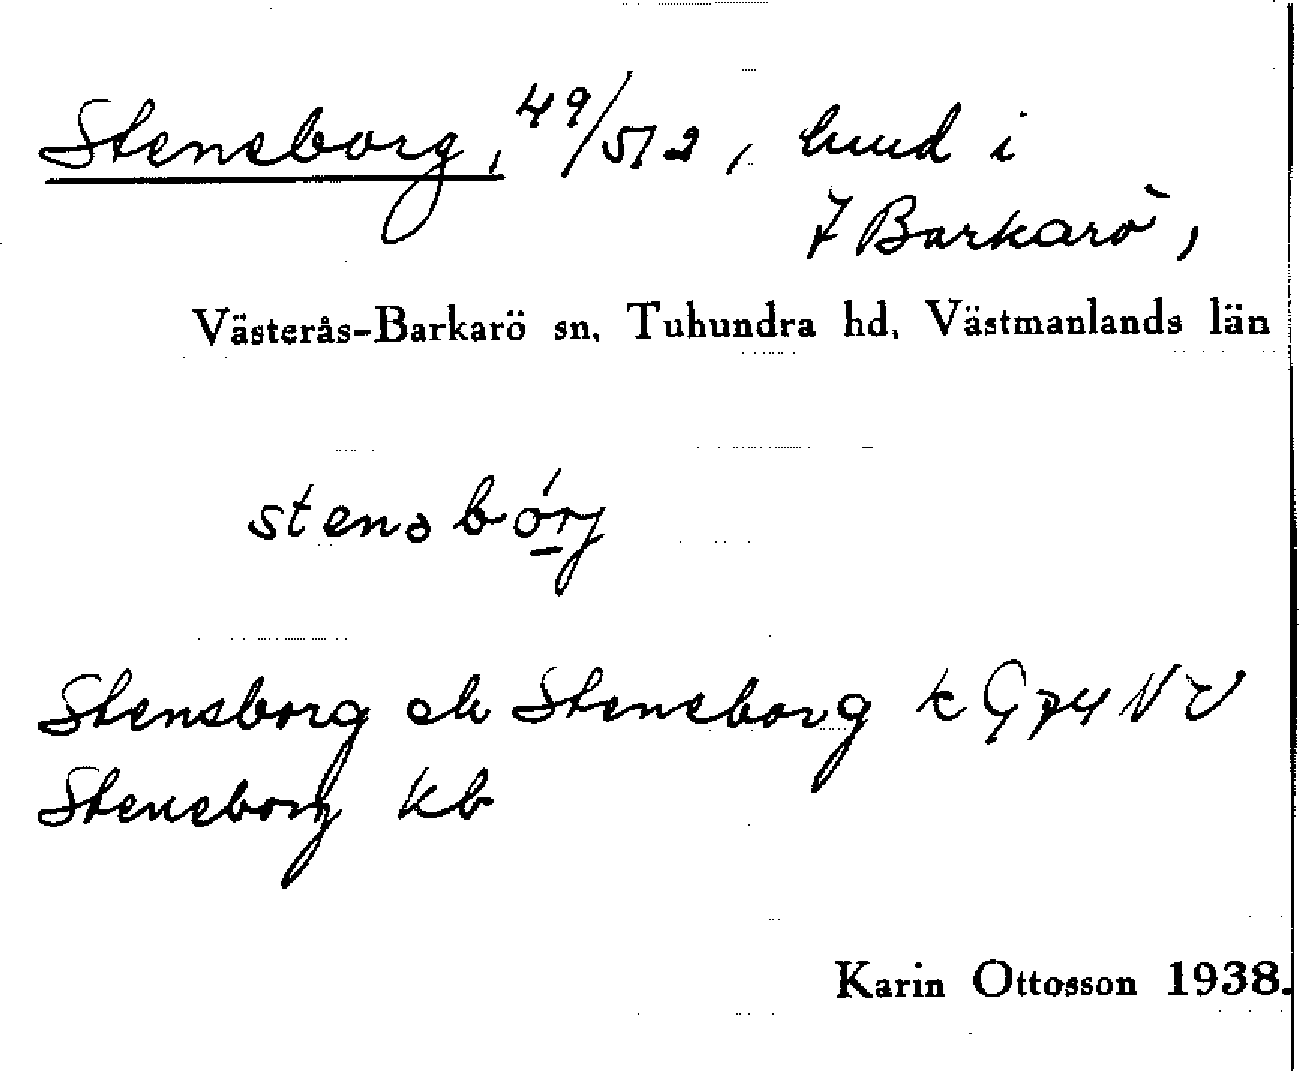 Stensborg, 49/512, lund i
7 Barkarö,
Västerås-Barkarö sn, Tuhundra hd, Västmanlands län
stensbórj
Stensborg ek Stensborg k G74 NV
Stensborg kb
Karin Ottosson 1938.